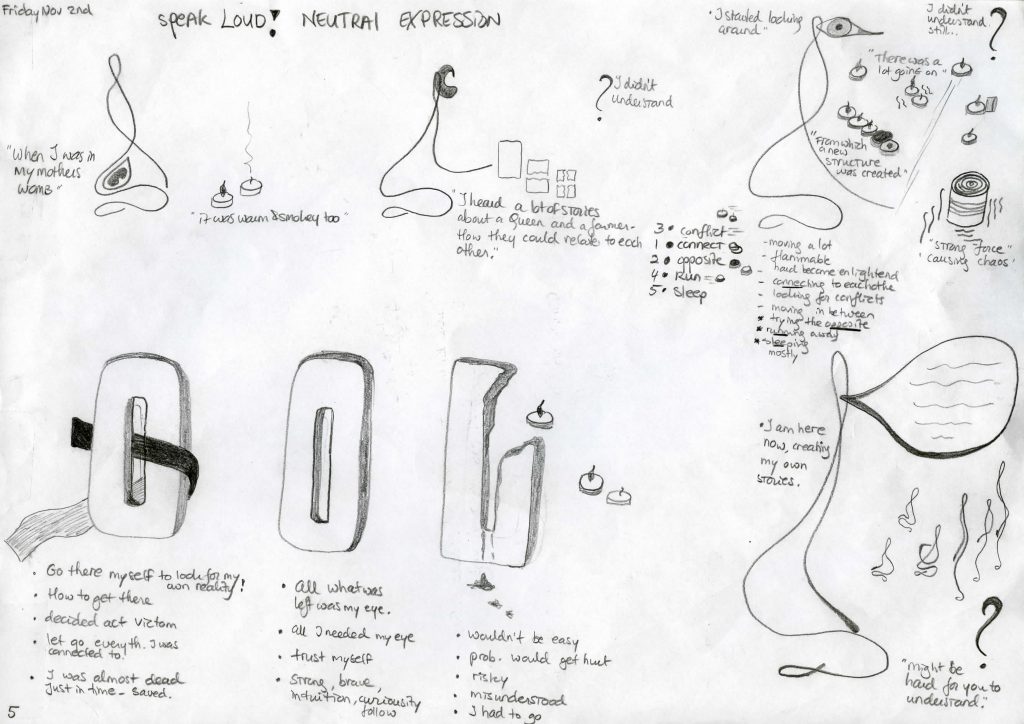 Friday Nov 2nd
speak LOUD! NEUTRAL EXPRESSION
"When I was in
my mothers
womb"
"it was warm & smokey too"
? I didn't
understand
"I heard a lot of stories
about a Queen and a farmer-
How they could relate to each
other."
"I started looking
around"
I didn't
understand
still..
?
"There was a
lot going on"
"From which
a new
structure
was created"
"strong force"
'causing chaos'
3 • conflict
1 • connect
2 • opposite
4 • Run
5 • Sleep
- moving a lot
- flanimable
- had became enlightend
- connecting to eachothe
- looking for conflicts
- moving in between
* trying the opposite
* running away
* sleeping
mostly
• Go there myself to look for my
own reality!
• How to get there
• decided act victom
• let go everyth. I was
connected to!
• I was almost dead
Just in time - saved.
• All what was
left was my eye.
• all I needed my eye
• trust myself
• Strong, brave,
intuition, curiousity
follow
• wouldn't be easy
• prob. would get hurt
• risky
• misunderstood
• I had to go
• I am here
now, creating
my own
stories.
?
"might be
hard for you to
understand."
5